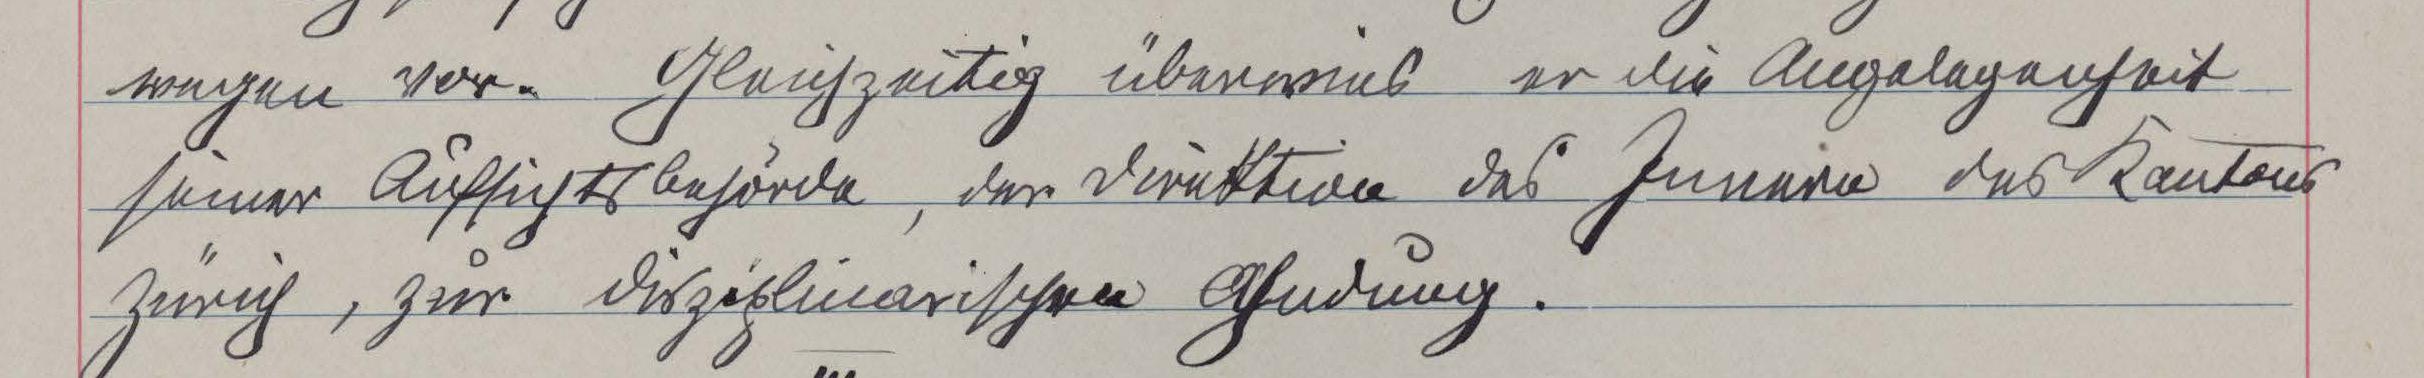 wegen vor. Gleichzeitig überwies er die Angelegenheit
seiner Aufsichtsbehörde, der Direktion des Innern des Kantons
Zürich, zur disziplinarischen Ahndung.